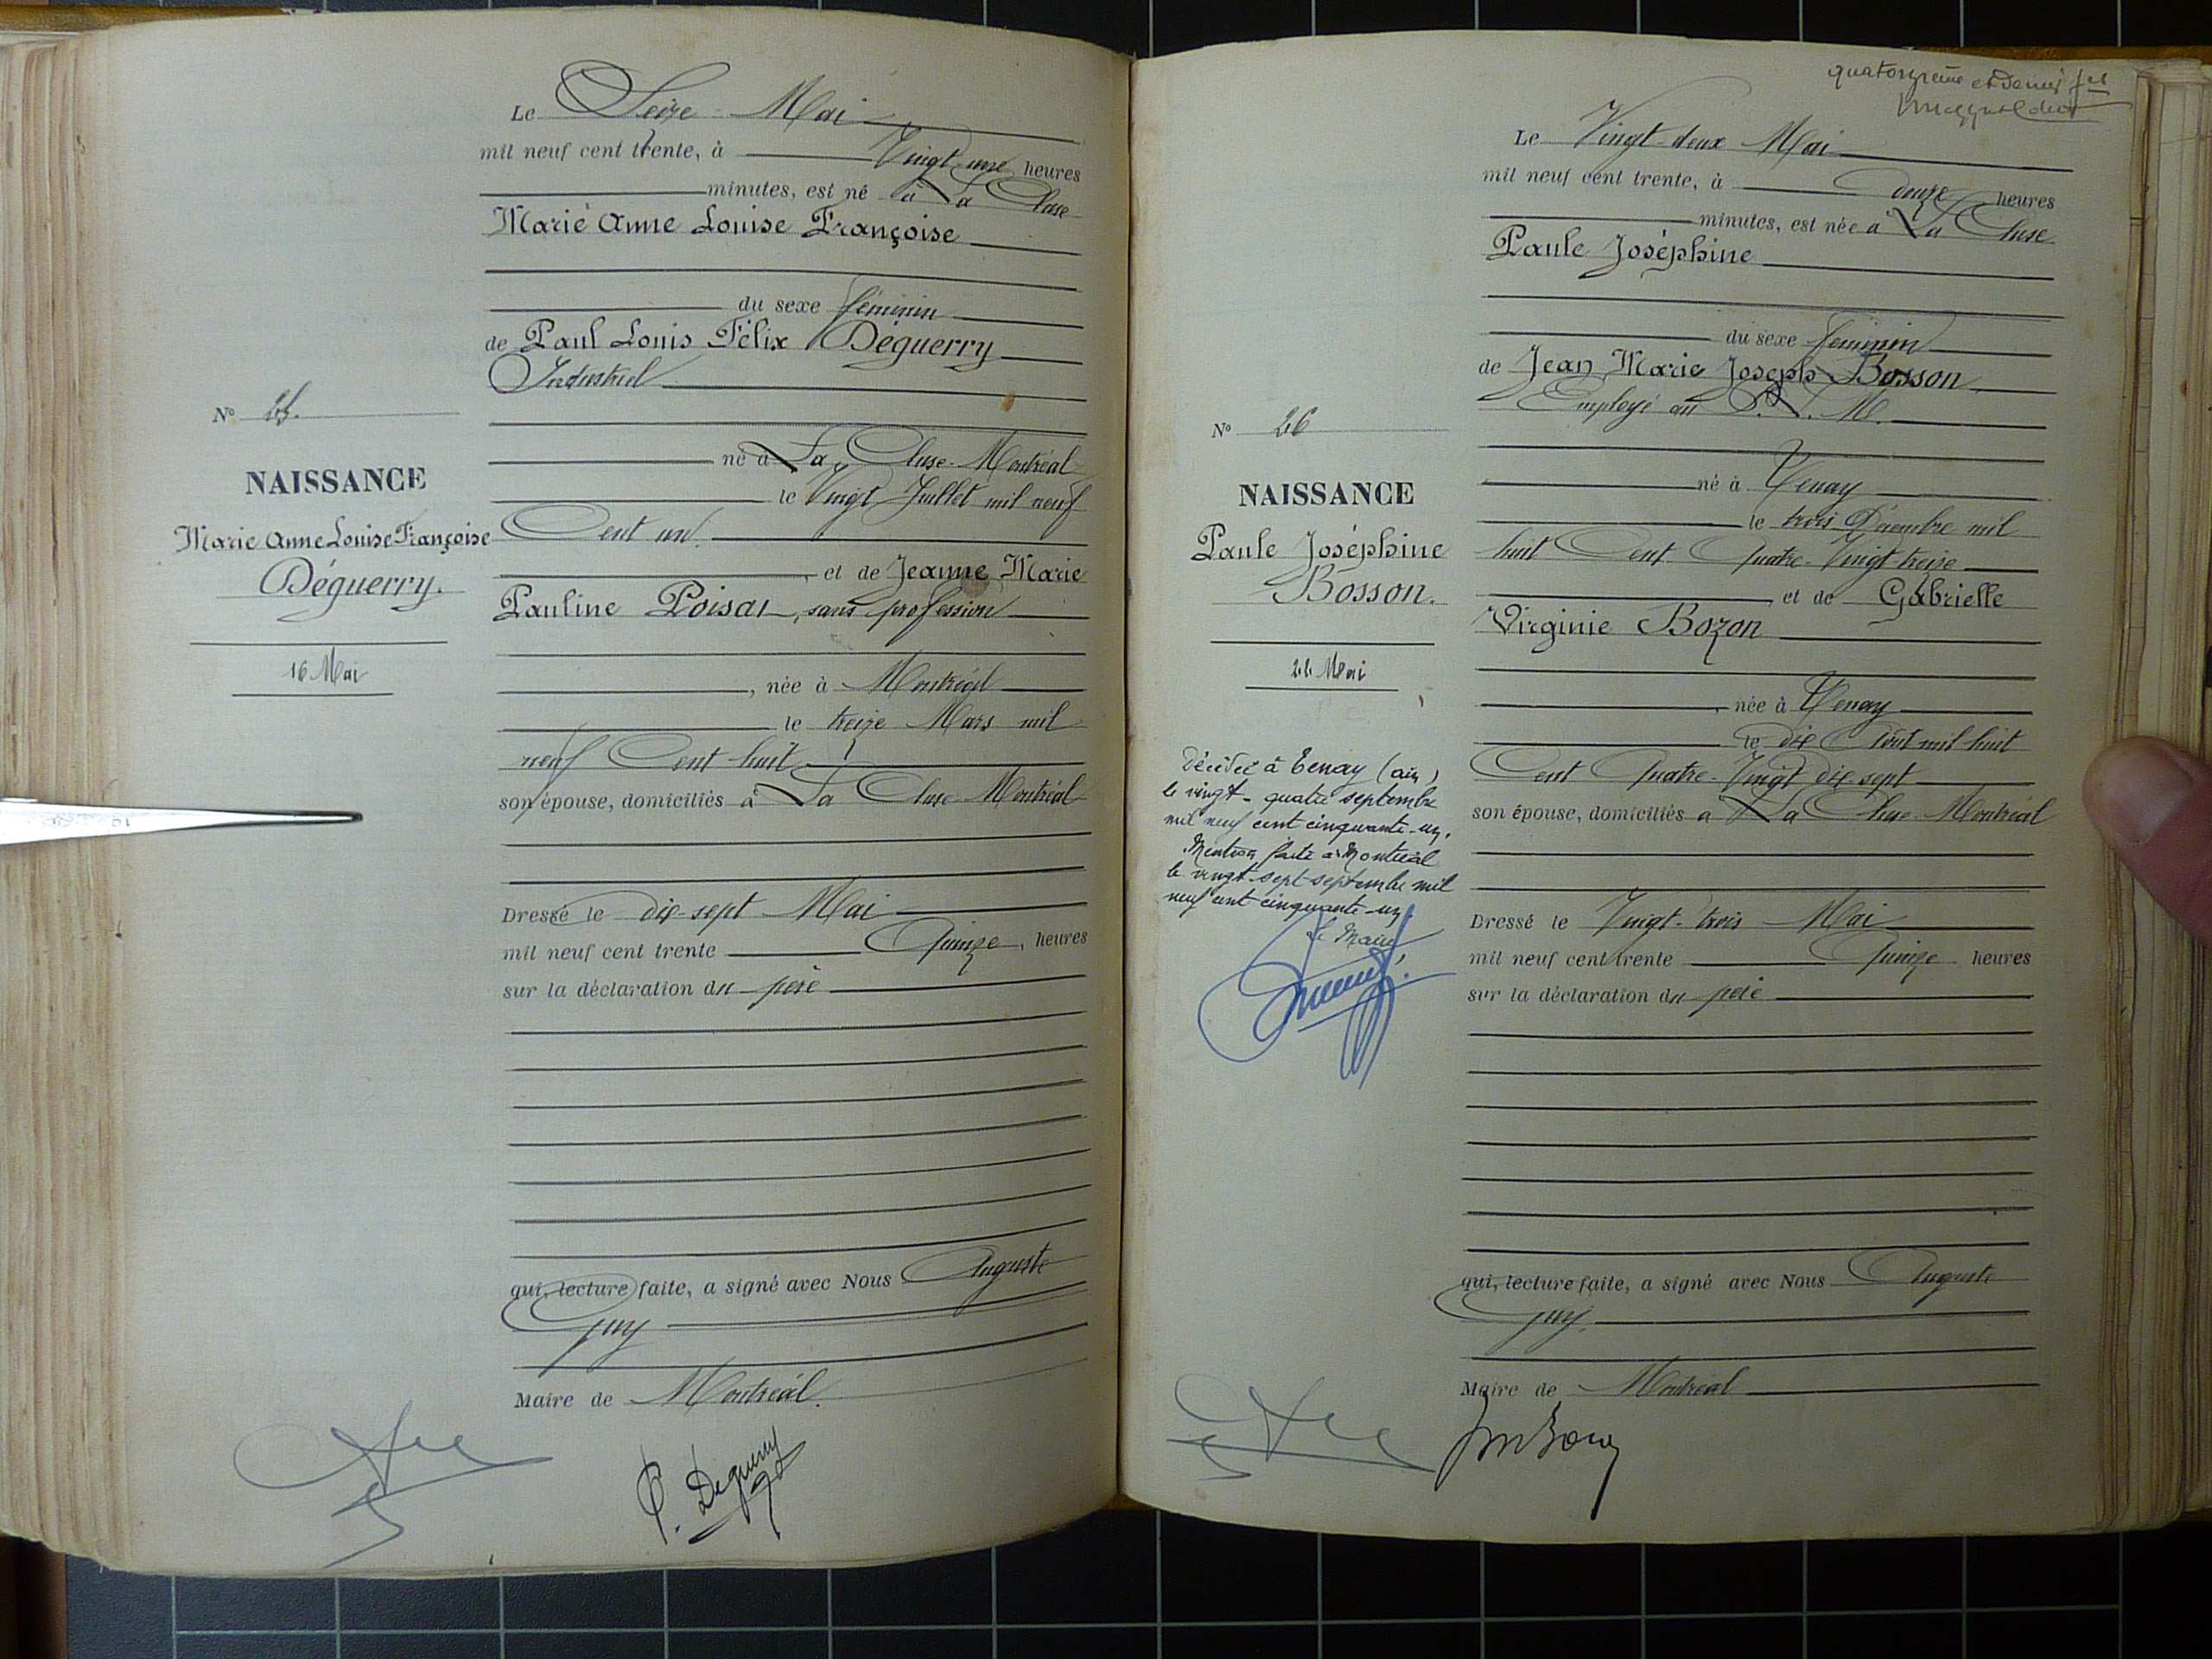 Le Seize Mai
mil neuf cent trente, à Vingt-une heures
minutes, est né à La Cluse
Marie Anne Louise Françoise
du sexe féminin
de Paul Louis Félix Déguerry
Industriel
né à La Cluse-Montréal
le Vingt Juillet mil neuf
Cent un.
, et de Jeanne Marie
Pauline Poisat, sans profession
, née à Montréal
le treize Mars mil
neuf Cent huit
son épouse, domiciliés à La Cluse-Montréal
Dressé le dix-sept Mai
mil neuf cent trente Quinze, heures
sur la déclaration du père
qui, lecture faite, a signé avec Nous Auguste
Guy
Maire de Montréal.
P. Deguerry
N° 25.
NAISSANCE
Marie Anne Louise Françoise
Déguerry.
16 Mai
quatorzième et dernier
Le Vingt-deux Mai
mil neuf cent trente, à douze heures
minutes, est née à La Cluse
Paule Joséphine
du sexe féminin
de Jean Marie Joseph Bosson
Employé au P. L. M.
né à Tenay
le trois Décembre mil
huit Cent Quatre-Vingt-treize
, et de Gabrielle
Virginie Bozon
, née à Tenay
le dix Août mil huit
Cent Quatre-Vingt dix-sept
son épouse, domiciliés à La Cluse-Montréal
Dressé le Vingt-trois Mai
mil neuf cent trente Quinze heures
sur la déclaration du père
qui, lecture faite, a signé avec Nous Auguste
Guy.
Maire de Montréal
N° 26
NAISSANCE
Paule Joséphine
Bosson.
22 Mai
Décédée à Tenay (ain)
le vingt-quatre septembre
mil neuf cent cinquante-un.
Mention faite à Montréal
le vingt-sept septembre mil
neuf cent cinquante-un.
Le Maire